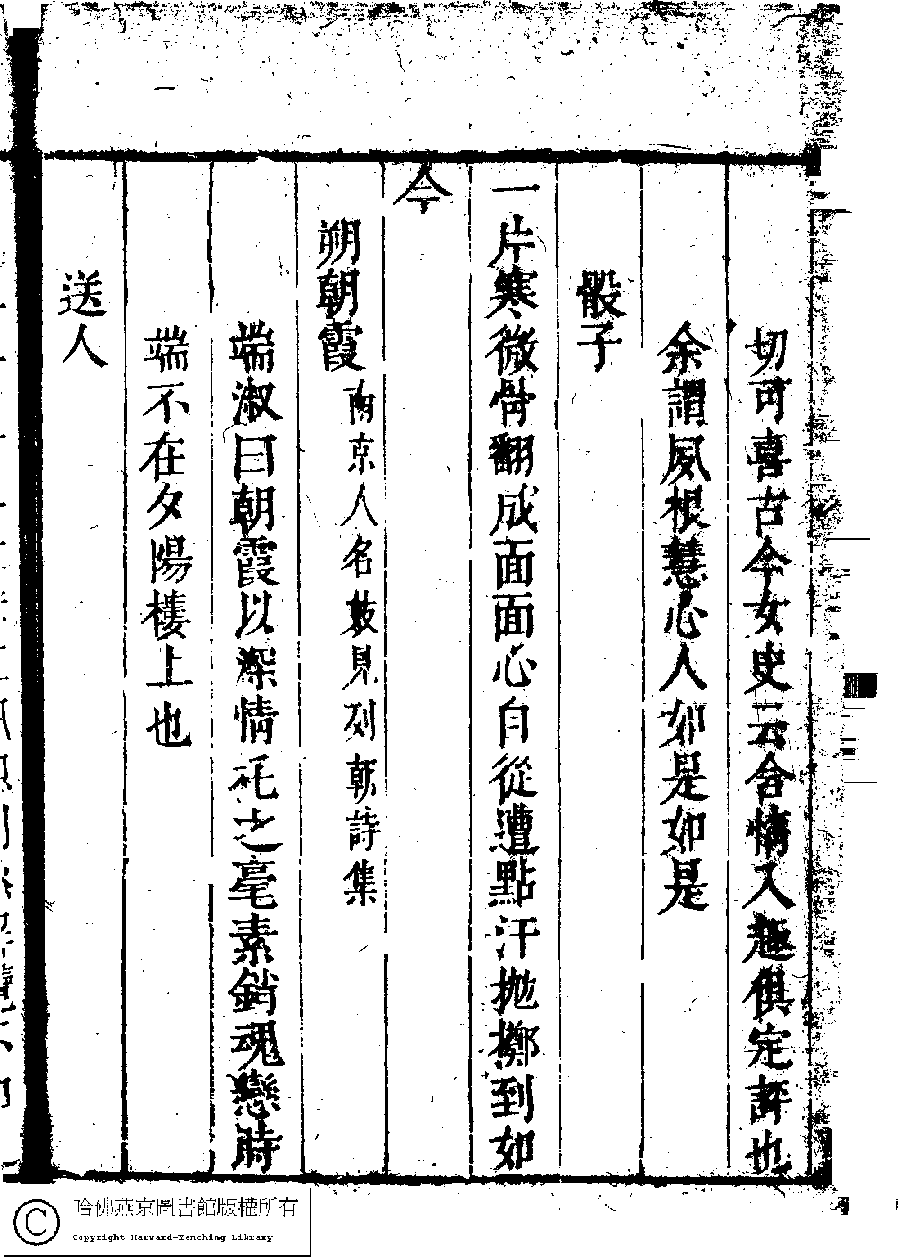 切可喜古今女史云含情入趣俱定評也
余謂夙根慧心人如是如是
骰子
一片寒微骨翻成面面心自從遭點汙拋擲到如
今
朔朝霞 南京人名敖見列朝詩集
端淑曰朝霞以深情託之毫素銷魂戀時
端不在夕陽樓上也
送人
哈佛燕京圖書館版權所有
Copyright Harvard-Yenching Library